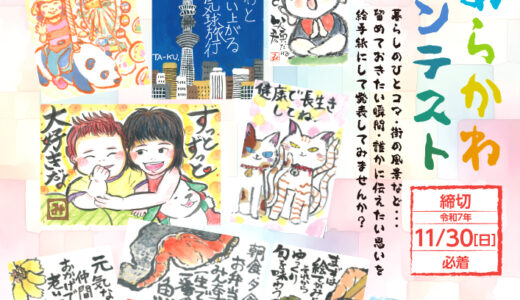 あらかわ
ンテスト
暮らしのひとコマ・街の風景など・・・
留めておきたい瞬間・誰かに伝えたい思いを
絵手紙にして発表してみませんか？
締切
令和7年
11/30[日]
必着
い上がる
気球旅行
TA-KU.
ずっと
ずっと
大好きだよ
み
健康で長生き
してね
元気な
仲間
おかげで
朝食夕食
お弁当
みんな
一番
まずは
絵から
ゆっくり
旬を味わう